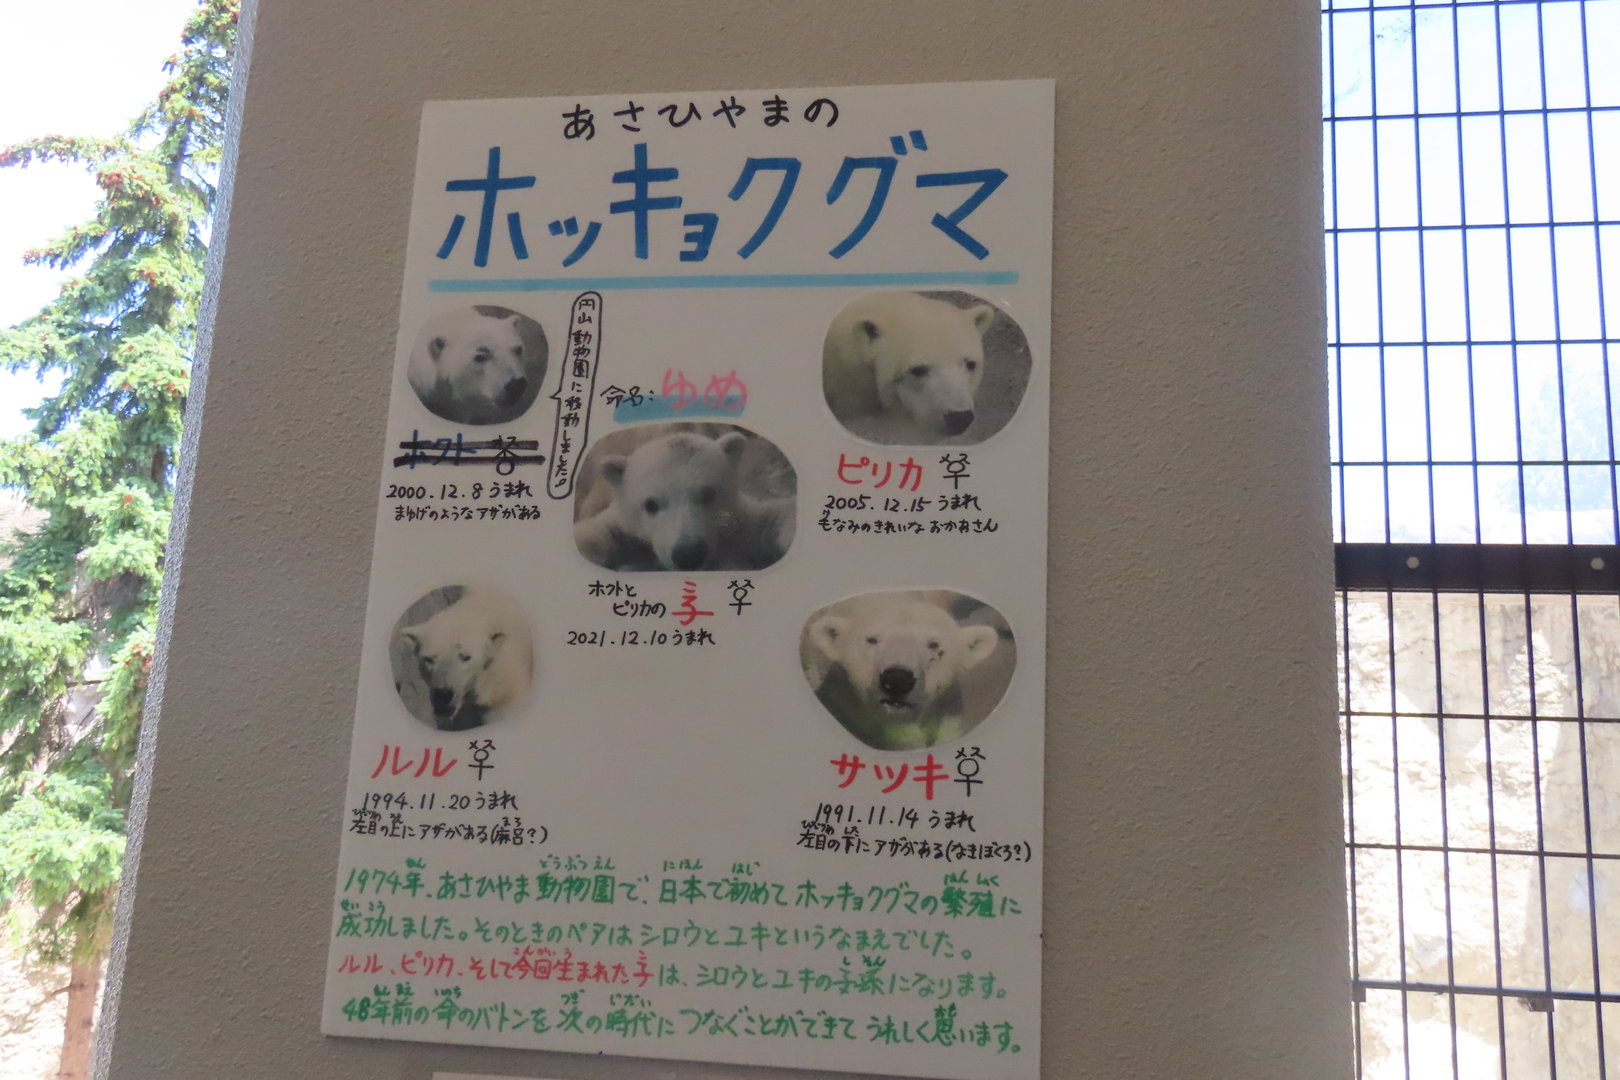 あさひやまの
ホッキョクグマ
円山動物園に移動しました。
命名:ゆめ
ホクト
2000.12.8うまれ
まゆげのようなアザがある
ピリカ メス
2005.12.15うまれ
毛なみのきれいなおかあさん
ホクトと
ピリカの子 メス
2021.12.10うまれ
ルル メス
1994.11.20うまれ
左目の上にアザがある(麻呂?)
サツキ メス
1991.11.14うまれ
左目の下にアザがある(なきぼくろ?)
1974年、あさひやま動物園で、日本で初めてホッキョクグマの繁殖に
成功しました。そのときのペアはシロウとユキというなまえでした。
ルル、ピリカ、そして今回生まれた子は、シロウとユキの子孫になります。
48年前の命のバトンを次の時代につなぐことができてうれしく思います。